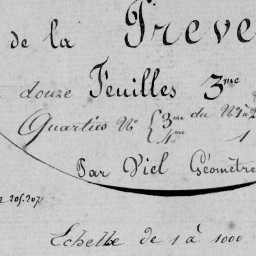 de la Treve
douze Feuilles 3me
Quartico No { 3me du No 1 à 2
4me 1
Par Viel Géomètre
205.207
Echelle de 1 à 1000